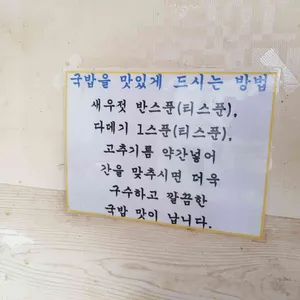 국밥을 맛있게 드시는 방법
새우젓 반스푼(티스푼),
다메기 1스푼(티스푼),
고추기름 약간넣어
간을 맞추시면 더욱
구수하고 깔끔한
국밥 맛이 납니다.